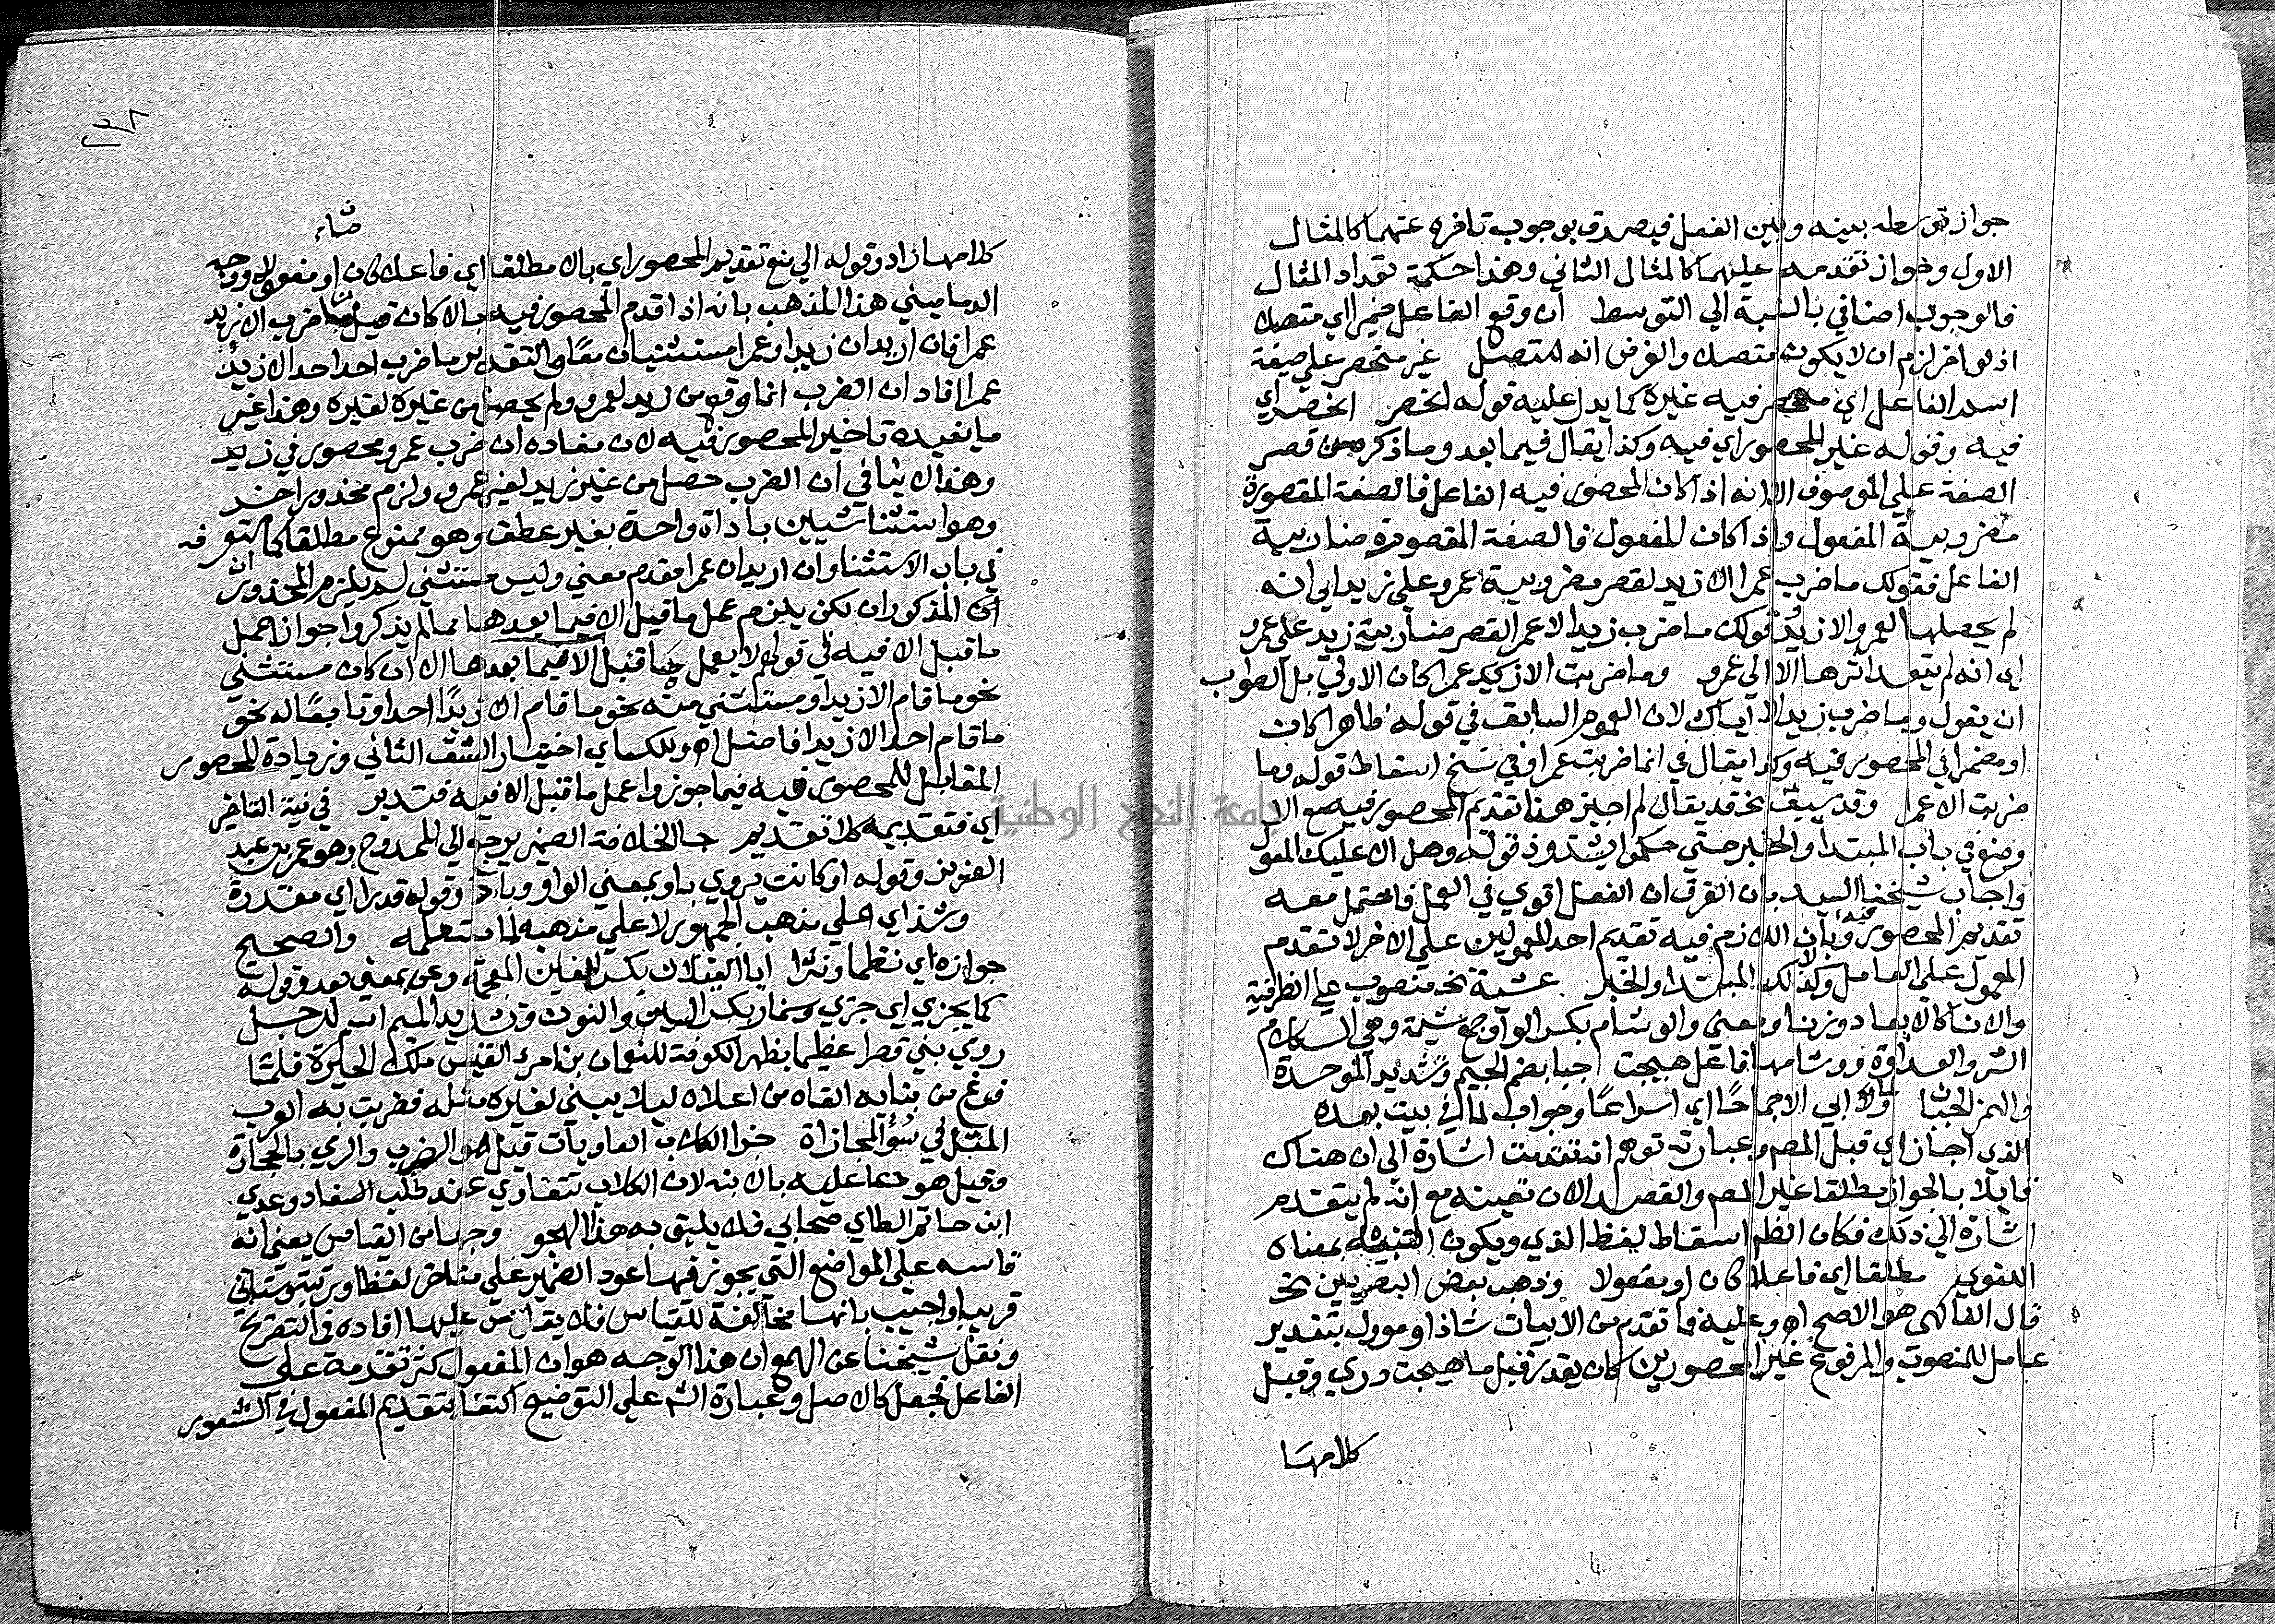 جواز توسطه بينه وبين الفعل فيصدق بوجوب تاخره عنهما كالمثال
الاول وجواز تقدمه عليهما كالمثال الثاني وهذا حكمة تعداد المثال
فالوجوب اضافي بالنسبة الي التوسط ان وقع الفاعل ضميرا اي متصلا
اذ لو اخر لزم ان لا يكون متصلا والفرض انه متصل غير منحصر علي صيغة
اسم الفاعل اي منحصر فيه غيره كما يدل عليه قوله انحصر انحصر اي
فيه وقوله غير المحصور اي فيه وكذا يقال فيما بعد وما ذكره من قصر
الصفة علي الموصوف الا انه اذا كان المحصور فيه الفاعل فالصفة المقصورة
مضروبية المفعول واذا كان المفعول فالصفة المقصورة ضاربية
الفاعل فقولك ما ضرب عمرا الا زيد لقصر مضروبية عمرو علي زيد اي انه
لم يحصلها لعمرو الا زيد وقولك ما ضرب زيد الا عمرا لقصر ضاربية زيد علي عمرو
اي انه لم يتعد اثرها الا الي عمرو وما ضربت الا زيد عمرا كان الاولي بل الصواب
ان يقول وما ضرب زيد الا اياك لان العموم السابق في قوله ظاهرا كان
او مضمرا في المحصور فيه وكذا يقال في انما ضربت عمرا وفي نسخ اسقاط قوله وما
ضربت الا عمرا وقد يسبق نح قد يقال لم اجيز هنا تقديم المحصور فيه مع الا
ومنع في باب المبتدا والخبر حتي حكموا بشذوذ قوله وهل الا عليك المعول
واجاب شيخنا السيد بان الفرق ان الفعل اقوي في العمل فاحتمل معه
تقديم المحصور فيه وبان اللازم فيه تقديم احد المعمولين علي الاخر لا تقدم
المعمول علي العامل ولا كذلك المبتدا والخبر عشية نح منصوب علي الظرفية
والاناء كالابعاد وزنا ومعني والوشام بكسر الواو جمع وشيمة وهي الكلام
الشر والعداوة ووشامها فاعل هيجت اجبا بضم الجيم وتشديد الموحدة
والهمز الجبان ولما ابي الا جماحا اي اسراعا وجواب لما في بيت بعده
الذي اجاز اي قبل المص وعبارته توهم انه تقدمت اشارة الي ان هناك
قايلا بالجواز مطلقا غير المص والقصد الان تعيينه مع انه لم يتقدم
اشارة الي ذلك فكان الظاهر اسقاط لفظ الذي ويكون التنبيه بمعناه
اللغوي مطلقا اي فاعلا كان او مفعولا وذهب بعض البصريين نح
قال الفاكهي هو الاصح اه وعليه فما تقدم من الابيات شاذ او موول بتقدير
عامل للمنصوب والمرفوع غير المحصورين كان يقدر قبل ما هيجت دري وقبل
كلامها
٢٣٨
كلامها زاد وقوله الي منع تقديم المحصور اي بالا مطلقا اي فاعلا كان او مفعولا ووجه
الدماميني هذا المذهب بانه اذا قدم المحصور فيه بالا كان قيل ما ضرب الا زيد
عمرا فان اريد ان زيدا وعمرا مستثنيان معا والتقدير ما ضرب احد احدا الا زيد
عمرا افاد ان الضرب انما وقع من زيد لعمرو ولم يحصل من غيره لغيره وهذا غير
ما يفيده تاخير المحصور فيه لان مفاده ان ضرب عمرو محصور في زيد
وهذا لا ينافي ان الضرب حصل من غير زيد لغير عمرو ولزم محذور اخر
وهو استثنا شيين باداة واحدة بغير عطف وهو ممنوع مطلقا كما ستعرفه
في باب الاستثنا وان اريد ان عمرا مقدم معني وليس مستثني لم يلزم المحذوران
المذكوران لكن يلزم عمل ما قبل الا فيما بعدها مما لم يذكروا جواز عمل
ما قبل الا فيه في قولهم لا يعمل ما قبل الا فيما بعدها الا ان كان مستثني
نحو ما قام الا زيد او مستثني منه نحو ما قام الا زيدا احد او تابعا له نحو
ما قام احد الا زيدا فاضل اه وللكساي اختيار الشق الثاني وزيادة المحصور
المقابل للمحصور فيه فيما جوزوا عمل ما قبل الا فيه فتدبر في نية التاخير
اي فتقديمه كلا تقديم جا الخلافة الضمير يرجع الي الممدوح وهو عمر بن عبد
العزيز وقوله او كانت يروي باو بمعني الواو وباذ وقوله قدرا اي مقدرة
وشذ اي علي مذهب الجمهور لا علي مذهبه لما ستعلمه والصحيح
جوازه اي نظما ونثرا ابا الغيلان بكسر الغين المعجمة وعن بمعني بعد وقوله
كما يجزي اي جزي وسنمار بكسر السين والنون وتشديد الميم اسم لرجل
روي بني قصرا عظيما بظهر الكوفة للنعمان بن امرء القيس ملك الحيرة فلما
فرغ من بنايه القاه من اعلاه ليلا يبني لغيره مثله فضربت به العرب
المثل في سوء المجازاة جزا الكلاب العاويات قيل هو الضرب والرمي بالحجارة
وقيل هو دعا عليه بالابنه لان الكلاب تتعاوي عند طلب السفاد وعدي
ابن حاتم الطاي صحابي فلا يليق به هذا الهجو وجها من القياس يعني انه
قاسه علي المواضع التي يجوز فيها عود الضمير علي متاخر لفظا ورتبة وستاتي
قريبا واجيب بانها مخالفة للقياس فلا يقاس عليها افاده في التصريح
ونقل شيخنا عن الهمع ان هذا الوجه هو ان المفعول كثر تقدمه علي
الفاعل فجعل كالاصل وعبارة الش علي التوضيح اكتفا بتقديم المفعول في الشعور
جامعة النجاح الوطنية